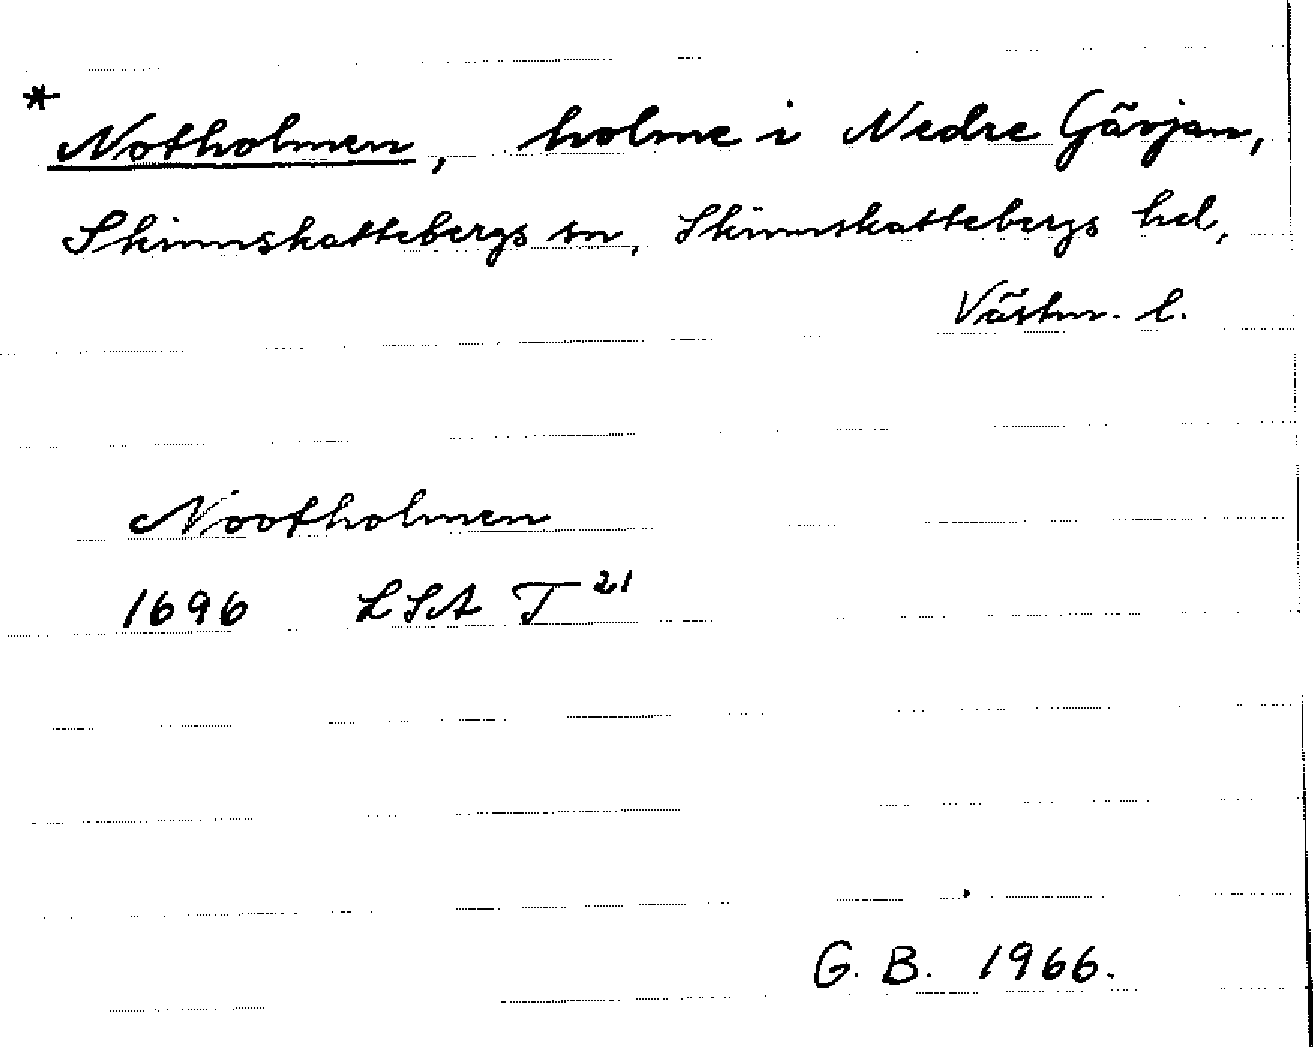 *
Notholmen, holme i Nedre Gävjan,
Skinnskattebergs sn, Skinnskattebergs hd,
Västm. l.
Nootholmen
1696 LSA T 21
G. B. 1966.